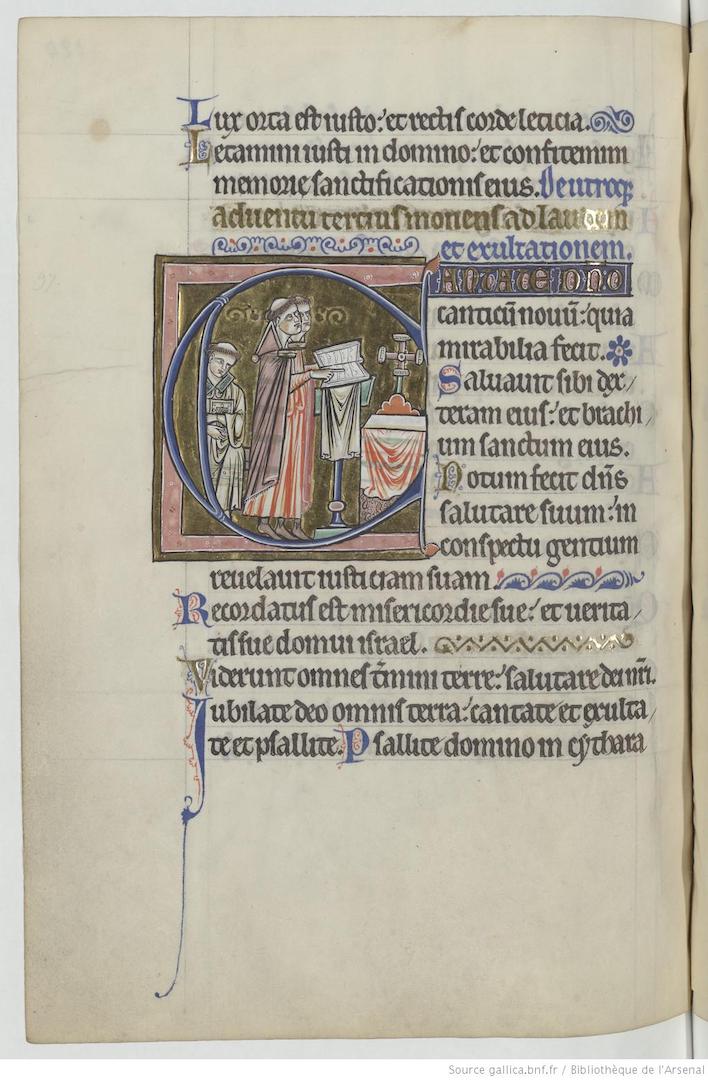 Lux orta est iusto: et rectis corde leticia.
Letamini iusti in domino: et confitemini
memorie sanctificationis eius. De utroq;
aduentu tercius monens ad laudem
et exultationem.
CANTATE DNO
canticū nouū: quia
mirabilia fecit.
Saluauit sibi dex/
teram eius: et brachi/
um sanctum eius.
Notum fecit dn̄s
salutare suum: in
conspectu gentium
reuelauit iusticiam suam.
Recordatus est misericordie sue: et uerita/
tis sue domui israel.
Viderunt omnes t̄mini terre: salutare dei nr̄i.
Iubilate deo omnis terra: cantate et exulta/
te et psallite. Psallite domino in cythara
97.
Source gallica.bnf.fr / Bibliothèque de l'Arsenal